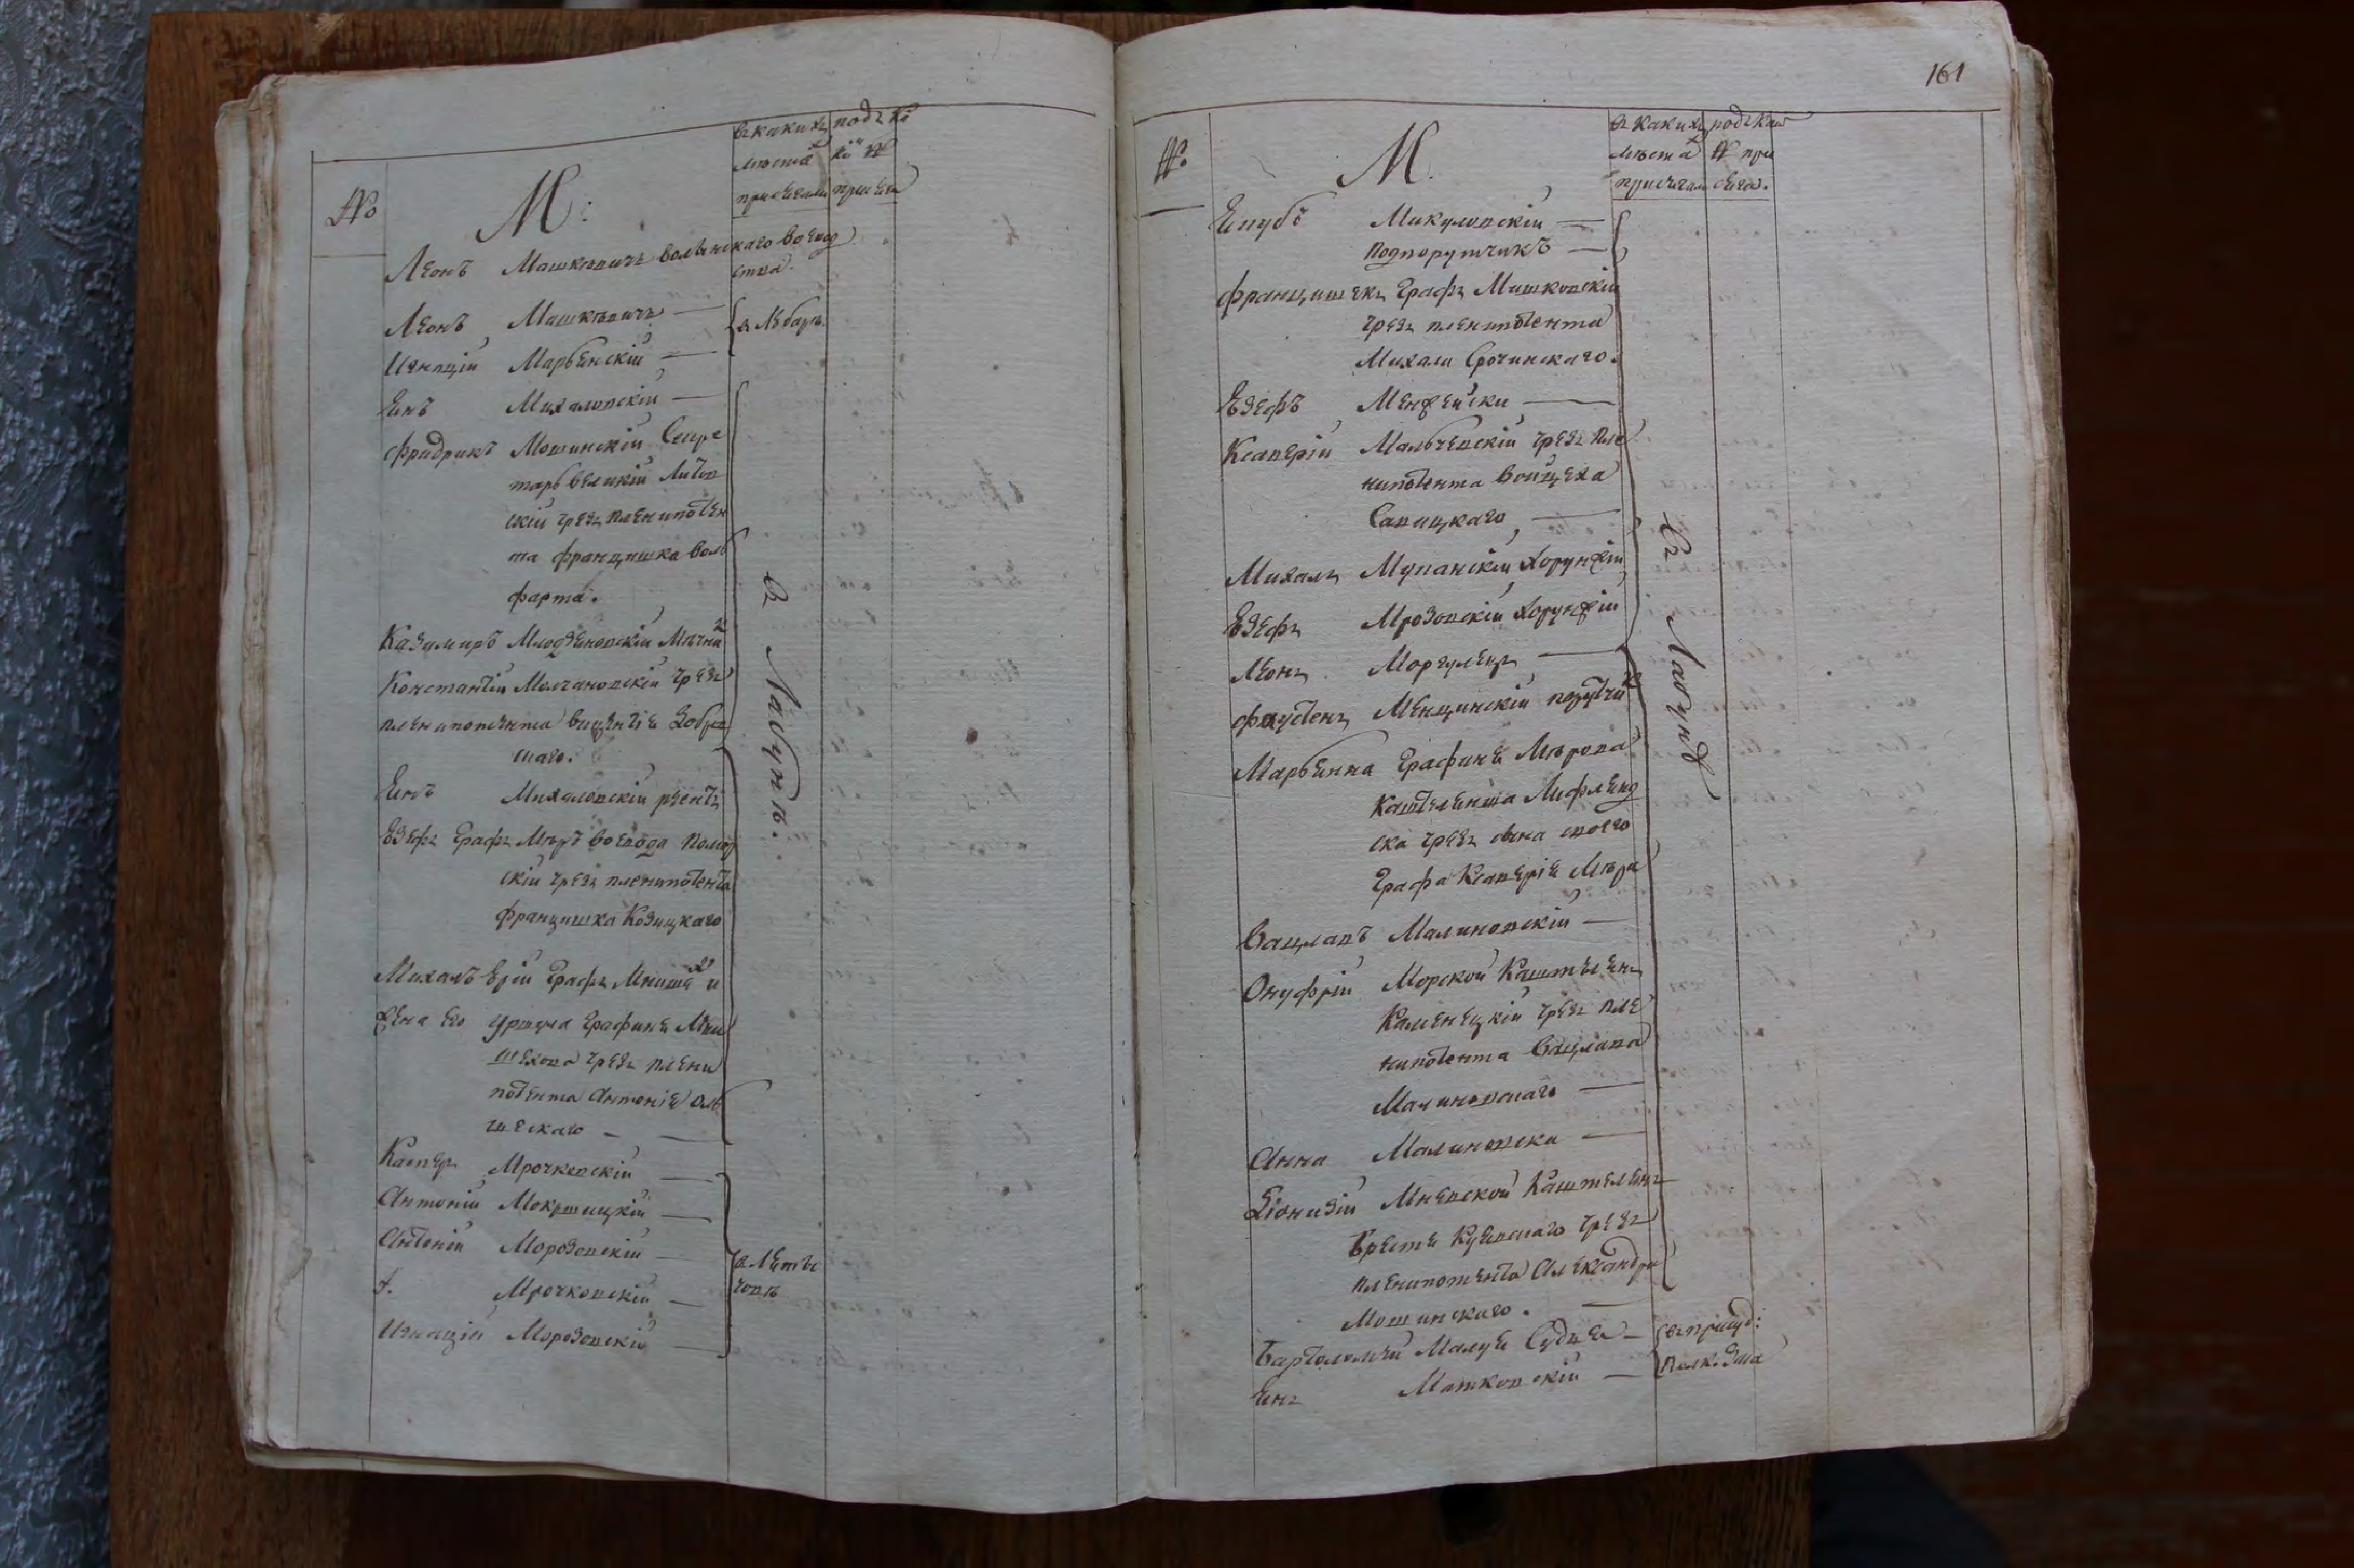 №
М:
въ какихъ
мѣстахъ
присягали
подъ ко
имъ №
присяга
Леонъ Машкѣвичъ волынскаго воевод
ства.
Леонъ Машкѣвичъ —
въ Лѣбарѣ
Игнацій Марьянскій —
Янъ Михаловскій —
Фридрихъ Мошинскій Секре
тарь великій Литов
скій чрезъ пленипотен
та францишка воль
фарта.
Казимиръ Млодзяновскій Мечник
Константій Молчановскій чрезъ
пленипотента винцентія
Янъ Михаловскій реентъ
Езефъ Графъ Мѣръ воевода Помор
скій чрезъ пленипотента
францишка Козицкаго
Михалъ Ерій Графъ Мнишех и
жена его Уршула Графиня Мни
шехова чрезъ плени
потента Антонія Оль
шескаго —
Касперъ Мрочковскій —
Антоній Мокршицкій —
Антоній Морозовскій —
Мрочковскій —
Игнацій Морозовскій —
въ Лабунѣ.
въ Леты
човѣ
161
№
М.
въ какихъ
мѣстах
присягал
подъ каким
№ при
сяга.
Якубъ Микуловскій —
Подпорутчикъ —
францишекъ Графъ Мишковскій
чрезъ пленипотента
Михали Срочинскаго.
Езефъ Менжейски —
Ксаверій Мальчевскій чрезъ пле
нипотента войцеха
Савицкаго —
Михалъ Хорунжій
Езефъ Мрозовскій Хорунжій
Леонъ Моргулецъ —
фаустенъ Менцинскій порутчик
Марьянна Графиня Мѣрова
Каштелянша Лифлянд
ска чрезъ сына своего
Графа Ксаверія Мѣра
Вацлавъ Малиновскій —
Онуфрій Морской Каштелянъ
Каменецкій чрезъ пле
нипотента Вацлава
Малиновскаго —
Анна Малиновска —
Діонизій Мневской Каштелянъ
Бреста Куявскаго чрезъ
пленипотента Александра
Мошинскаго. —
Бартоломей Судья —
Янъ Матковскій —
въ Лабунѣ